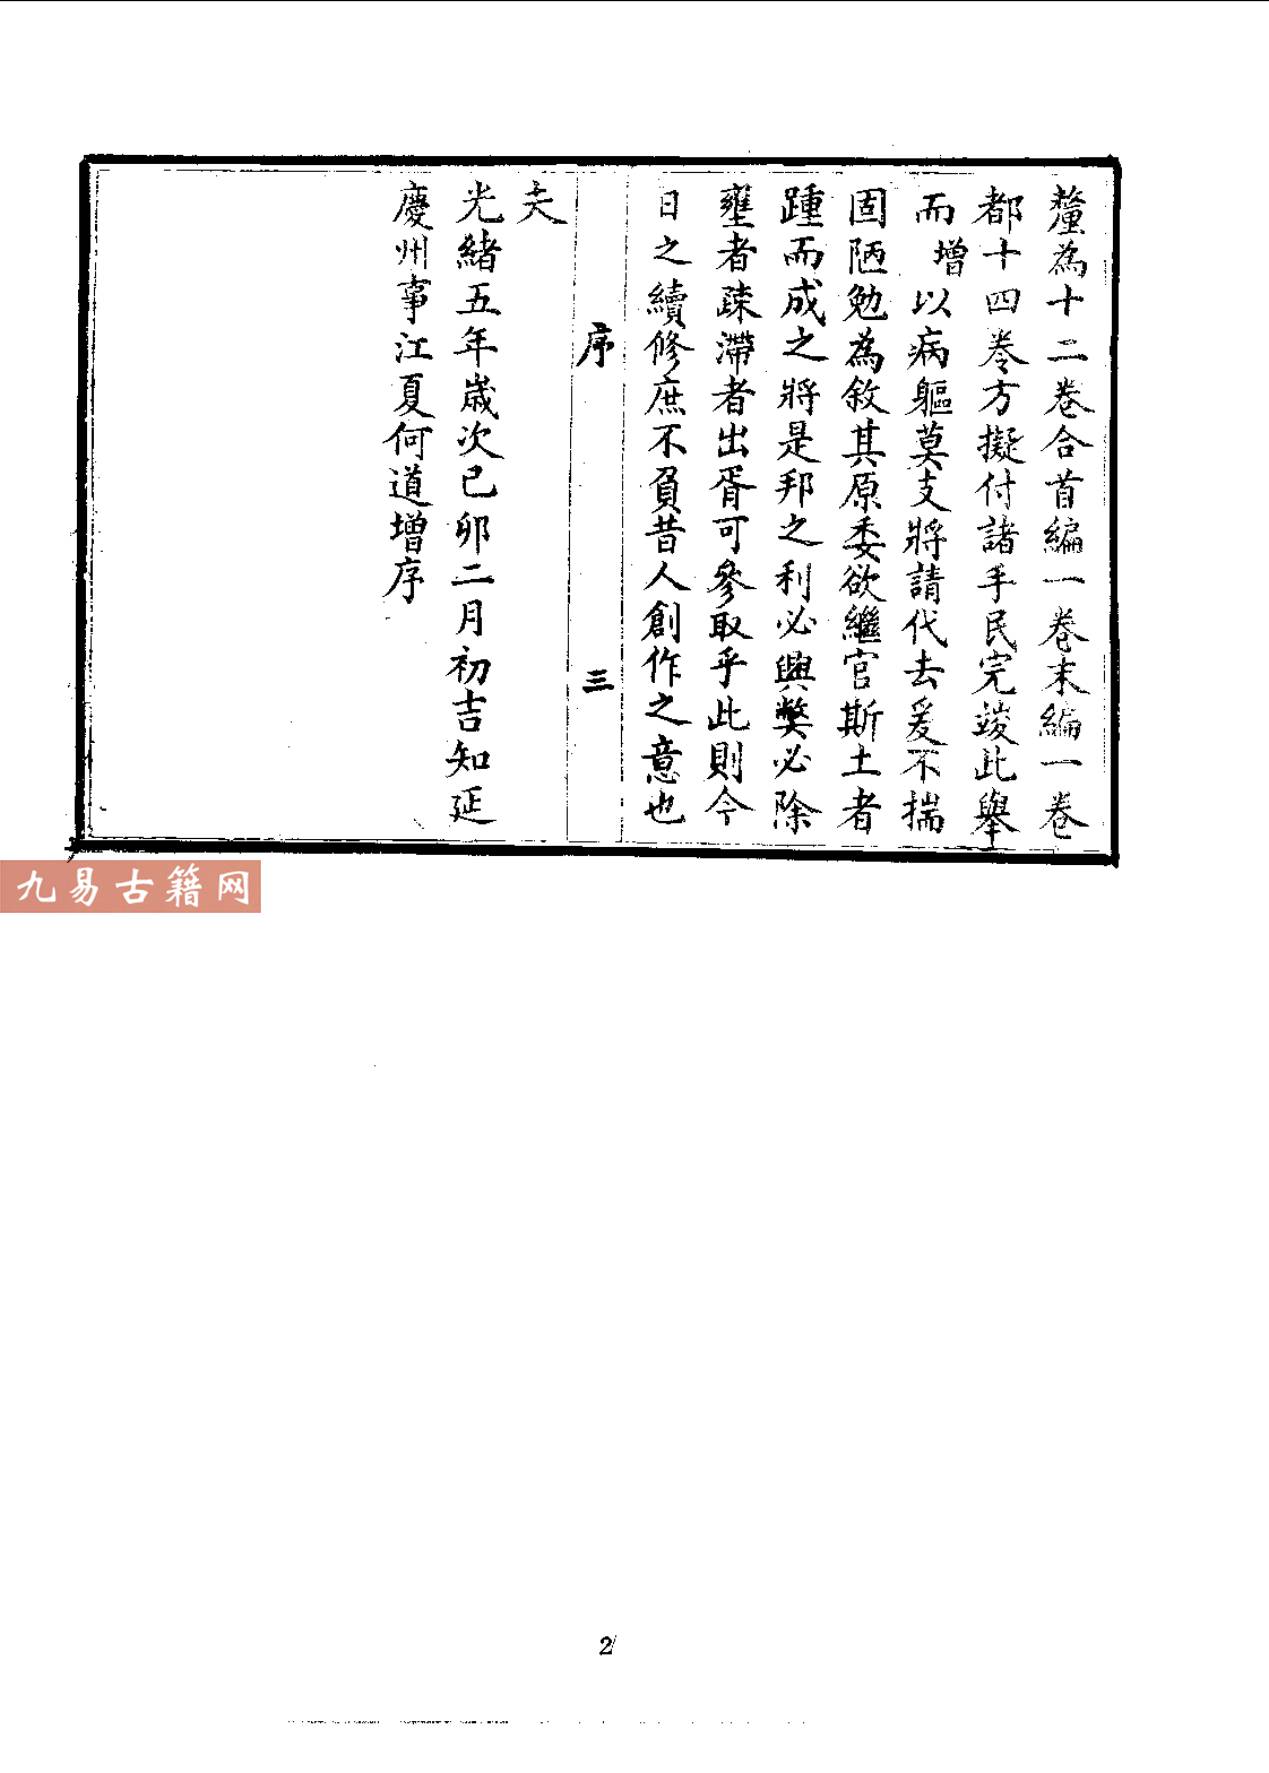 釐為十二卷合首編一卷末編一卷
都十四卷方擬付諸手民完竣此舉
而增以病軀莫支將請代去爰不揣
固陋勉為敘其原委欲繼官斯土者
踵而成之將是邦之利必興弊必除
壅者疎滯者出胥可參取乎此則今
日之續修庶不負昔人創作之意也
序 三
夫
光緒五年歲次己卯二月初吉知延
慶州事江夏何道增序
九易古籍网
2